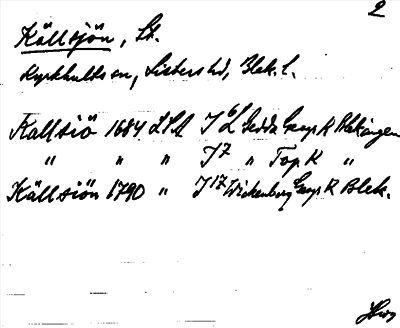 2
Källsjön, St.
Kyrkhults sn, Listers hd, Blek. l.
Kallsiö 1684 LSA I 6 Gedda Geogr K Blekingen
" " " I 7 " Top K "
Källsiön 1790 " I 17 Wickenberg Geogr K Blek.